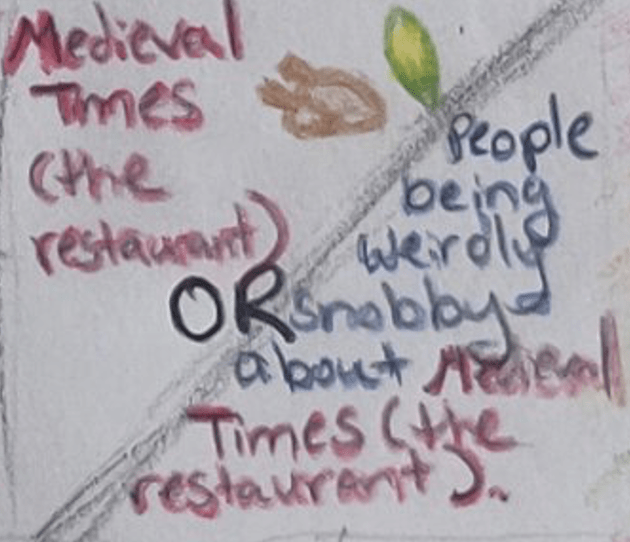 Medieval
Times
(the
restaurant)
OR
People
being
weirdly
snobby
about Medieval
Times (the
restaurant).